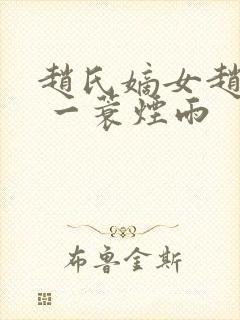 趙氏嫡女趙
一蓑煙雨
布魯金斯